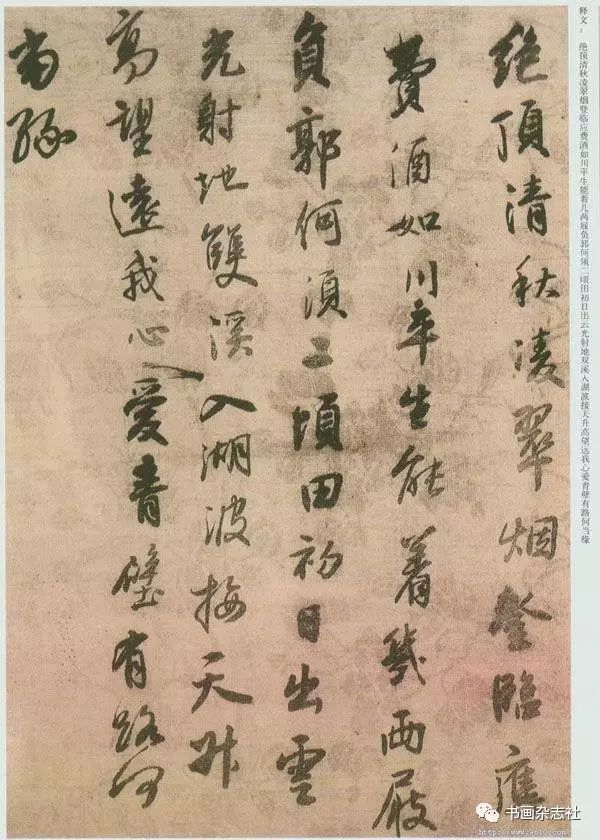 绝顶清秋凌翠烟登临应
费酒如川平生能着几两屐
负郭何须二顷田初日出云
光射地双溪入湖波接天升
高望远我心爱青壁有路何
当缘
释文：绝顶清秋凌翠烟登临应费酒如川平生能着几两屐负郭何须二顷田初日出云光射地双溪入湖波接天升高望远我心爱青壁有路何当缘
书画杂志社
http://www.9610.com